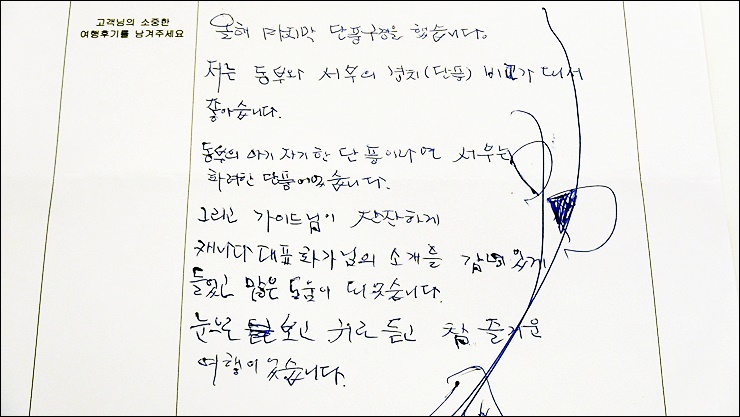 고객님의 소중한
여행후기를 남겨주세요
올해 마지막 단풍구경을 했습니다.
저는 동부와 서부의 경치(단풍) 비교가 되서
좋았습니다.
동부의 아기자기한 단풍이라며 서부는
화려한 단풍이었습니다.
그리고 가이드님이 잔잔하게
캐나다 대표화가님의 소개를 감명있게
들었고 많은 도움이 되었습니다.
눈으로 보고 귀로 듣고 참 즐거운
여행이었습니다.